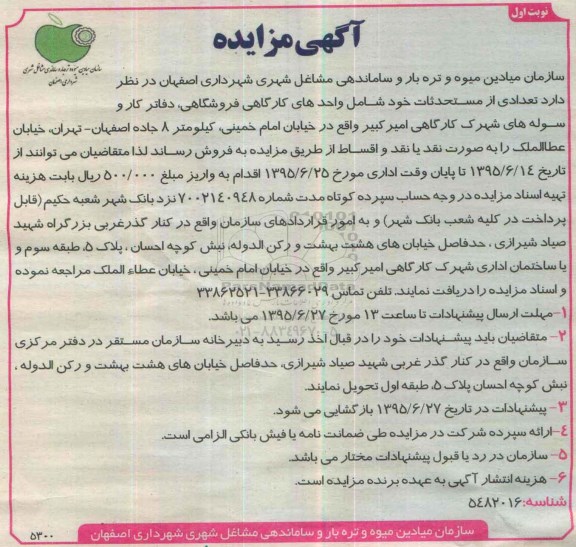 نوبت اول
سازمان میادین میوه و تره بار و ساماندهی مشاغل شهری
شهرداری اصفهان
آگهی مزایده
سازمان میادین میوه و تره بار و ساماندهی مشاغل شهری شهرداری اصفهان در نظر
دارد تعدادی از مستحدثات خود شامل واحد های کارگاهی فروشگاهی، دفاتر کار و
سوله های شهرک کارگاهی امیرکبیر واقع در خیابان امام خمینی، کیلومتر ۸ جاده اصفهان- تهران، خیابان
عطاالملک را به صورت نقد یا نقد و اقساط از طریق مزایده به فروش رساند لذا متقاضیان می توانند از
تاریخ ۱۳۹۵/۶/۱۴ تا پایان وقت اداری مورخ ۱۳۹۵/۶/۲۵ اقدام به واریز مبلغ ۵۰۰/۰۰۰ ریال بابت هزینه
تهیه اسناد مزایده در وجه حساب سپرده کوتاه مدت شماره ۷۰۰۲۱۴۰۹۴۸ نزد بانک شهر شعبه حکیم (قابل
پرداخت در کلیه شعب بانک شهر) و به امور قراردادهای سازمان واقع در کنار گذرغربی بزرگراه شهید
صیاد شیرازی ، حدفاصل خیابان های هشت بهشت و رکن الدوله، نبش کوچه احسان ، پلاک ۵، طبقه سوم و
یا ساختمان اداری شهرک کارگاهی امیرکبیر واقع در خیابان امام خمینی ، خیابان عطاء الملک مراجعه نموده
و اسناد مزایده را دریافت نمایند. تلفن تماس ۳۳۸۶۶۰۲۹-۳۳۸۶۲۵۲۱
۱-مهلت ارسال پیشنهادات تا ساعت ۱۳ مورخ ۱۳۹۵/۶/۲۷ می باشد.
۲- متقاضیان باید پیشنهادات خود را در قبال اخذ رسید به دبیرخانه سازمان مستقر در دفتر مرکزی
سازمان واقع در کنار گذر غربی شهید صیاد شیرازی، حدفاصل خیابان های هشت بهشت و رکن الدوله ،
نبش کوچه احسان پلاک ۵، طبقه اول تحویل نمایند.
۳- پیشنهادات در تاریخ ۱۳۹۵/۶/۲۷ بازگشایی می شود.
۴-ارائه سپرده شرکت در مزایده طی ضمانت نامه یا فیش بانکی الزامی است.
۵- سازمان در رد یا قبول پیشنهادات مختار می باشد.
۶- هزینه انتشار آگهی به عهده برنده مزایده است.
شناسه: ۵۴۸۲۰۱۶
سازمان میادین میوه و تره بار و ساماندهی مشاغل شهری شهرداری اصفهان
۵۳۰۰